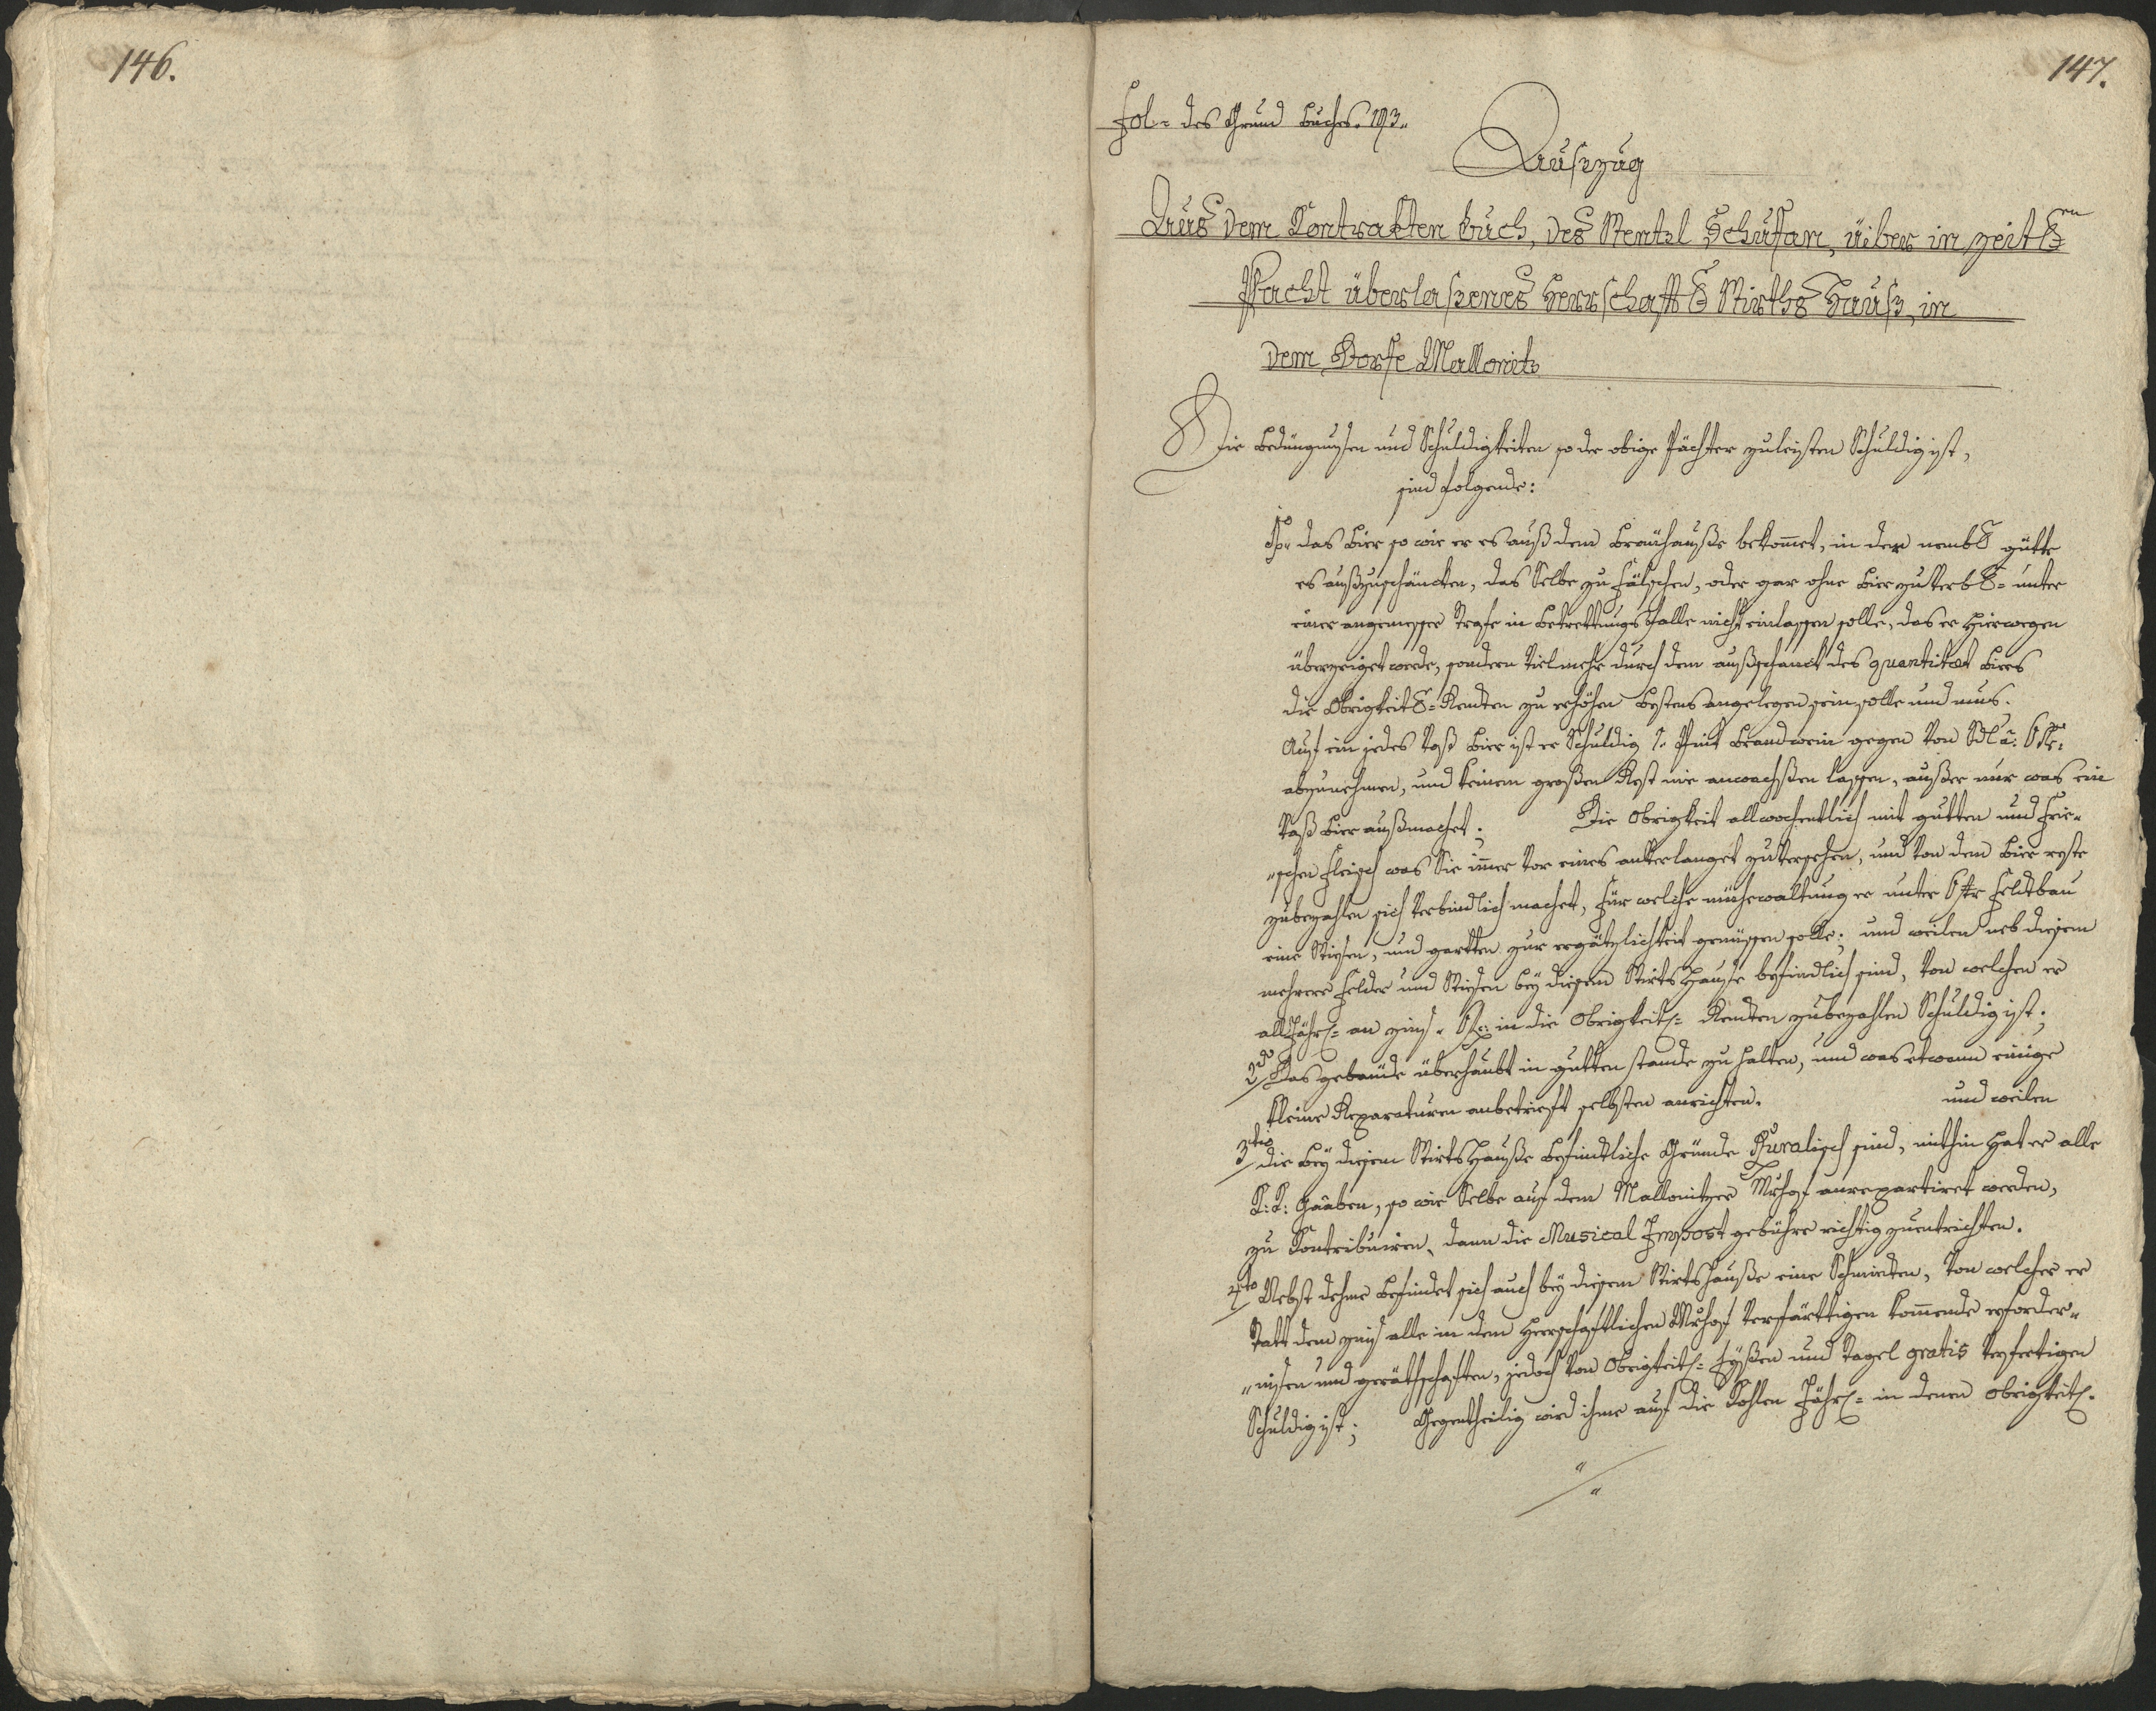 146.
147.
Fol= des Grund Buchs. 193.
Auszug
Aus dem Kontrakten Buch, des Wentzl Schustan, über in zeitl.en
Pacht überlaßenes Herrschaftl. Wirths Hauß, in
dem Dorfe Mallonitz
Die Bedüngnussen und Schuldigkeiten so der obige Pächter zuleisten Schuldig ist,
sind folgende:
das Bier so wie er es auß dem Bräuhauße bekomet, in der nembl. gütte
es außzuschäncken, das Selbe zu fälschen, oder gar ohne Bier zu verbl.= unter
einer angemessner Strafe in Betrettungs Falle nicht einlassen solle, das er hierwegen
überzeiget werde, sondern Vielmehr durch dem außschanck des quantitæt Biers
die Obrigkeitl.= Renten zu erhöhen bestens angelegen sein solle und mus.
Auf ein jedes Vaß Bier ist er Schuldig 1. Pint Brandwein gegen von
abzunehmen, und keinen großen Rest nie anwachßen lassen, außer nur was ein
Vaß Bier außmachet; Die Obrigkeit allwochentlich mit gutten und Frie=
"schen Fleisch was Sie imer vor eines anverlanget zu versehen, und von dem Bier reste
zubezahlen sich verbindlich machet, Für welche mühewaltung er unter Feldtbau
eine Wiesen, und gartten zur ergätzlichkeit genüssen solle; und weilen neb diesem
mehrere Felder und Wiesen bey diesem Wirts Hauße befindlich sind, von welchen er
all Jährl.= an zinß in die Obrigkeitl.= Renten zubezahlen Schuldig ist;
2do Das gebäude überhaubt in gutten stande zu halten, und was etwann einige
kleine Reparaturen anbetrieft selbsten anrichten. und weilen
3tio die Bey diesem Wirts Hauße befindtliche Gründe Ruralisch sind, mithin hat er alle
K:K: Gaaben, so wie Selbe auf dem Mallonitzer Mrhof anrepartiret werden,
zu Kontribuiren, dann die Musical Impost gebühr richtig zuentrichten.
4to Nebst dehme befindet sich auch bey diesem Wirtshauße eine Schmieten, von welcher er
statt dem zinß alle in dem Herrschaftlichen Mrhof verfärttigen komende erforder=
"nissen und geräthschaften, jedoch von Obrigkeitl.= Eyßen und Nagel gratis verfertigen
Schuldig ist; Gegentheilig wird ihme auf die Kohlen Jährl.= in denen obrigkeitl.